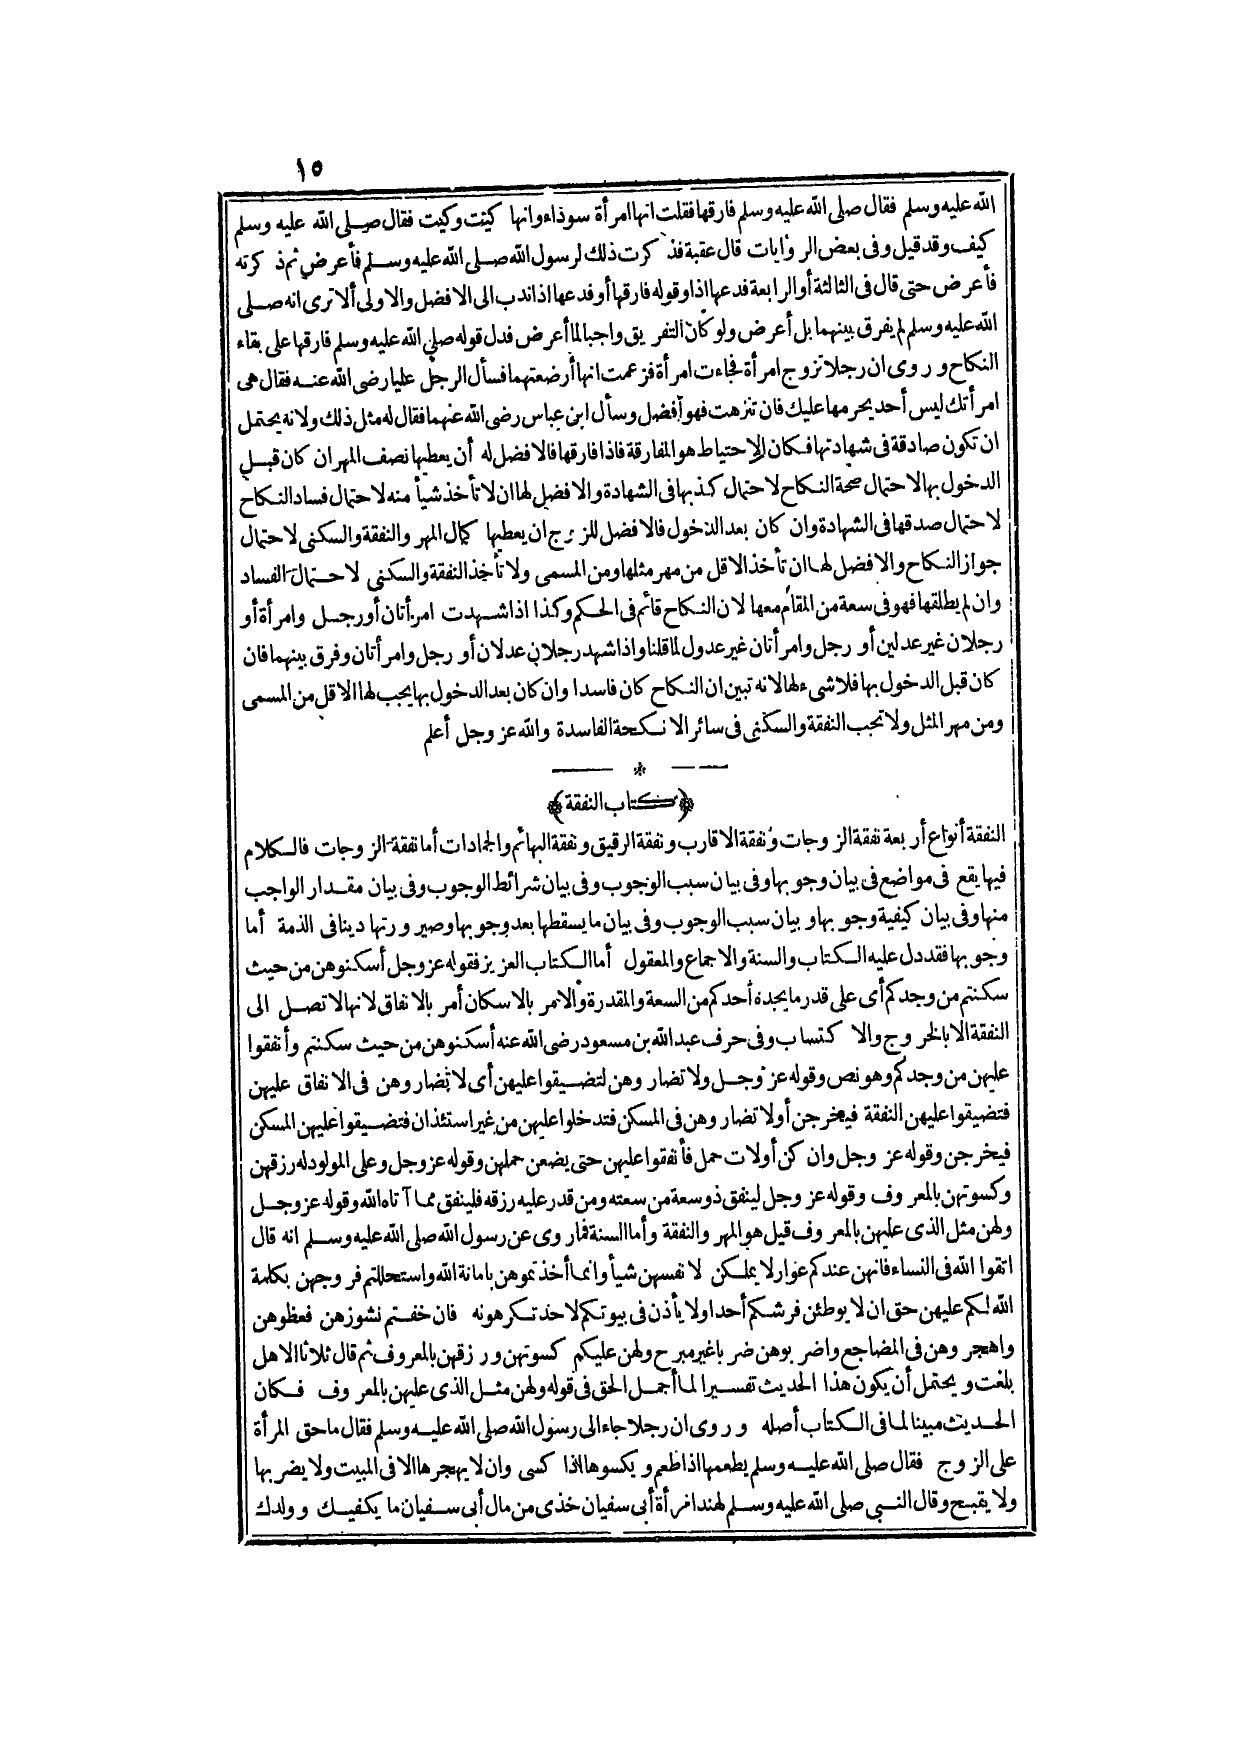 ١٥
الله عليه وسلم فقال صلى الله عليه وسلم فارقها فقلت انها امرأة سوداء وانها كيت وكيت فقال صلى الله عليه وسلم
كيف وقد قيل وفى بعض الروايات قال عقبة فذكرت ذلك لرسول الله صلى الله عليه وسلم فأعرض ثم ذكرته
فأعرض حتى قال فى الثالثة أو الرابعة فدعها اذا وقوله فارقها أو فدعها اذا ندب الى الافضل والاولى ألا ترى انه صلى
الله عليه وسلم لم يفرق بينهما بل أعرض ولو كان التفريق واجبا لما أعرض فدل قوله صلى الله عليه وسلم فارقها على بقاء
النكاح وروى ان رجلا تزوج امرأة فجاءت امرأة فزعمت انها أرضعتهما فسأل الرجل عليا رضى الله عنه فقال هى
امرأتك ليس أحد يحرمها عليك فان تنزهت فهو أفضل وسأل ابن عباس رضى الله عنهما فقال له مثل ذلك ولانه يحتمل
ان تكون صادقة فى شهادتها فكان الاحتياط هو المفارقة فاذا فارقها فالافضل له أن يعطيها نصف المهر ان كان قبل
الدخول بها لاحتمال صحة النكاح لاحتمال كذبها فى الشهادة والافضل لها ان لا تأخذ شيأ منه لاحتمال فساد النكاح
لاحتمال صدقها فى الشهادة وان كان بعد الدخول فالافضل للزوج ان يعطيها كمال المهر والنفقة والسكنى لاحتمال
جواز النكاح والافضل لها ان تأخذ الاقل من مهر مثلها ومن المسمى ولا تأخذ النفقة والسكنى لاحتمال الفساد
وان لم يطلقها فهو فى سعة من المقام معها لان النكاح قائم فى الحكم وكذا اذا شهدت امرأتان أو رجل وامرأة أو
رجلان غير عدلين أو رجل وامرأتان غير عدول لما قلنا واذا شهد رجلان عدلان أو رجل وامرأتان وفرق بينهما فان
كان قبل الدخول بها فلا شىء لها لانه تبين ان النكاح كان فاسدا وان كان بعد الدخول بها يجب لها الاقل من المسمى
ومن مهر المثل ولا تجب النفقة والسكنى فى سائر الانكحة الفاسدة والله عز وجل أعلم
﴿كتاب النفقة﴾
النفقة أنواع أربعة نفقة الزوجات ونفقة الاقارب ونفقة الرقيق ونفقة البهائم والجمادات أما نفقة الزوجات فالكلام
فيها يقع فى مواضع فى بيان وجوبها وفى بيان سبب الوجوب وفى بيان شرائط الوجوب وفى بيان مقدار الواجب
منها وفى بيان كيفية وجوبها وبيان سبب الوجوب وفى بيان ما يسقطها بعد وجوبها وصيرورتها دينا فى الذمة أما
وجوبها فقد دل عليه الكتاب والسنة والاجماع والمعقول أما الكتاب العزيز فقوله عز وجل أسكنوهن من حيث
سكنتم من وجدكم أى على قدر ما يجده أحدكم من السعة والمقدرة والامر بالاسكان أمر بالانفاق لانها لا تصل الى
النفقة الا بالخروج والاكتساب وفى حرف عبد الله بن مسعود رضى الله عنه أسكنوهن من حيث سكنتم وأنفقوا
عليهن من وجدكم وهو نص وقوله عز وجل ولا تضاروهن لتضيقوا عليهن أى لا تضاروهن فى الانفاق عليهن
فتضيقوا عليهن النفقة فيخرجن أو لا تضاروهن فى المسكن فتدخلوا عليهن من غير استئذان فتضيقوا عليهن المسكن
فيخرجن وقوله عز وجل وان كن أولات حمل فأنفقوا عليهن حتى يضعن حملهن وقوله عز وجل وعلى المولود له رزقهن
وكسوتهن بالمعروف وقوله عز وجل لينفق ذو سعة من سعته ومن قدر عليه رزقه فلينفق مما آتاه الله وقوله عز وجل
ولهن مثل الذى عليهن بالمعروف قيل هو المهر والنفقة وأما السنة فما روى عن رسول الله صلى الله عليه وسلم انه قال
اتقوا الله فى النساء فانهن عندكم عوار لا يملكن لانفسهن شيأ وانما أخذتموهن بامانة الله واستحللتم فروجهن بكلمة
الله لكم عليهن حق ان لا يوطئن فرشكم أحدا ولا يأذن فى بيوتكم لاحد تكرهونه فان خفتم نشوزهن فعظوهن
واهجروهن فى المضاجع واضربوهن ضربا غير مبرح ولهن عليكم كسوتهن ورزقهن بالمعروف ثم قال ثلاثا الا هل
بلغت ويحتمل أن يكون هذا الحديث تفسيرا لما أجمل الحق فى قوله ولهن مثل الذى عليهن بالمعروف فكان
الحديث مبينا لما فى الكتاب أصله وروى ان رجلا جاء الى رسول الله صلى الله عليه وسلم فقال ما حق المرأة
على الزوج فقال صلى الله عليه وسلم يطعمها اذا طعم ويكسوها اذا كسى وان لا يهجرها الا فى المبيت ولا يضربها
ولا يقبح وقال النبى صلى الله عليه وسلم لهند امرأة أبى سفيان خذى من مال أبى سفيان ما يكفيك وولدك